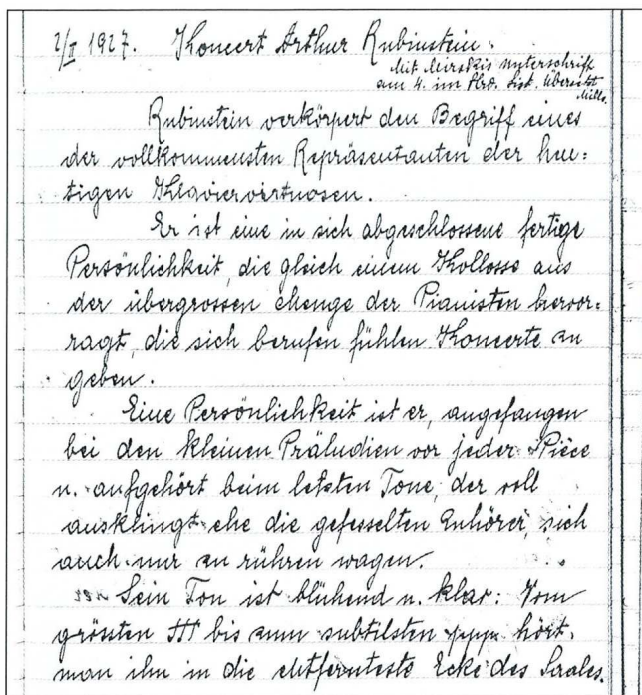 2/II 1927. Koncert Arthur Rubinstein.
Mit Mirskis Unterschrift
am 4. im übersetzt
Rubinstein verkörpert den Begriff eines
der vollkommensten Repräsentanten der heu:
tigen Klaviervirtuosen.
Er ist eine in sich abgeschlossene fertige
Persönlichkeit, die gleich einem Kollosse aus
der übergrossen Menge der Pianisten hervor:
ragt, die sich berufen fühlen Koncerte zu
geben.
Eine Persönlichkeit ist er, angefangen
bei den kleinen Präludien vor jeder Pièce
u. aufgehört beim letzten Tone, der voll
ausklingt ehe die gefesselten Zuhörer, sich
auch nur zu rühren wagen.
Sein Ton ist blühend u. klar: Vom
grössten fff bis zum subtilsten pppp hört
man ihn in die entfernteste Ecke des Saales.